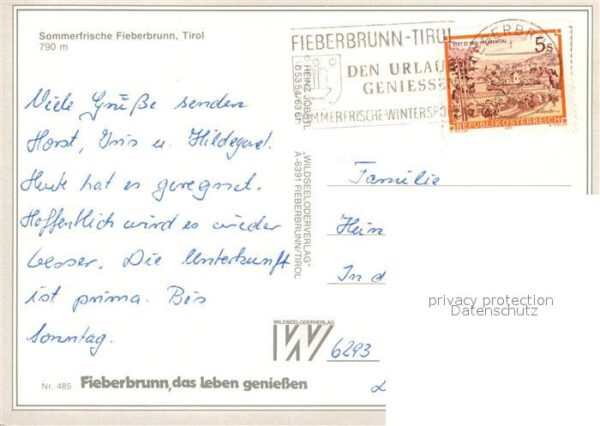 Sommerfrische Fieberbrunn, Tirol
790 m
Viele Grüße senden
Horst, Iris u. Hildegard.
Heute hat es geregnet.
Hoffentlich wird es wieder
besser. Die Unterkunft
ist prima. Bis
Sonntag.
Nr. 485 Fieberbrunn, das Leben genießen
FIEBERBRUNN-TIROL
DEN URLAU
GENIESSE
MMERFRISCHE-WINTERSPO
FIEBERBR
5s
REPUBLIK ÖSTERREICH
© HEINZ JÖBSTL
0 53 54/63 67
WILDSEELODERVERLAG"
A-6391 FIEBERBRUNN/TIROL
WILDSEELODERVERLAG
Familie
Hein
In d
6293
privacy protection
Datenschutz